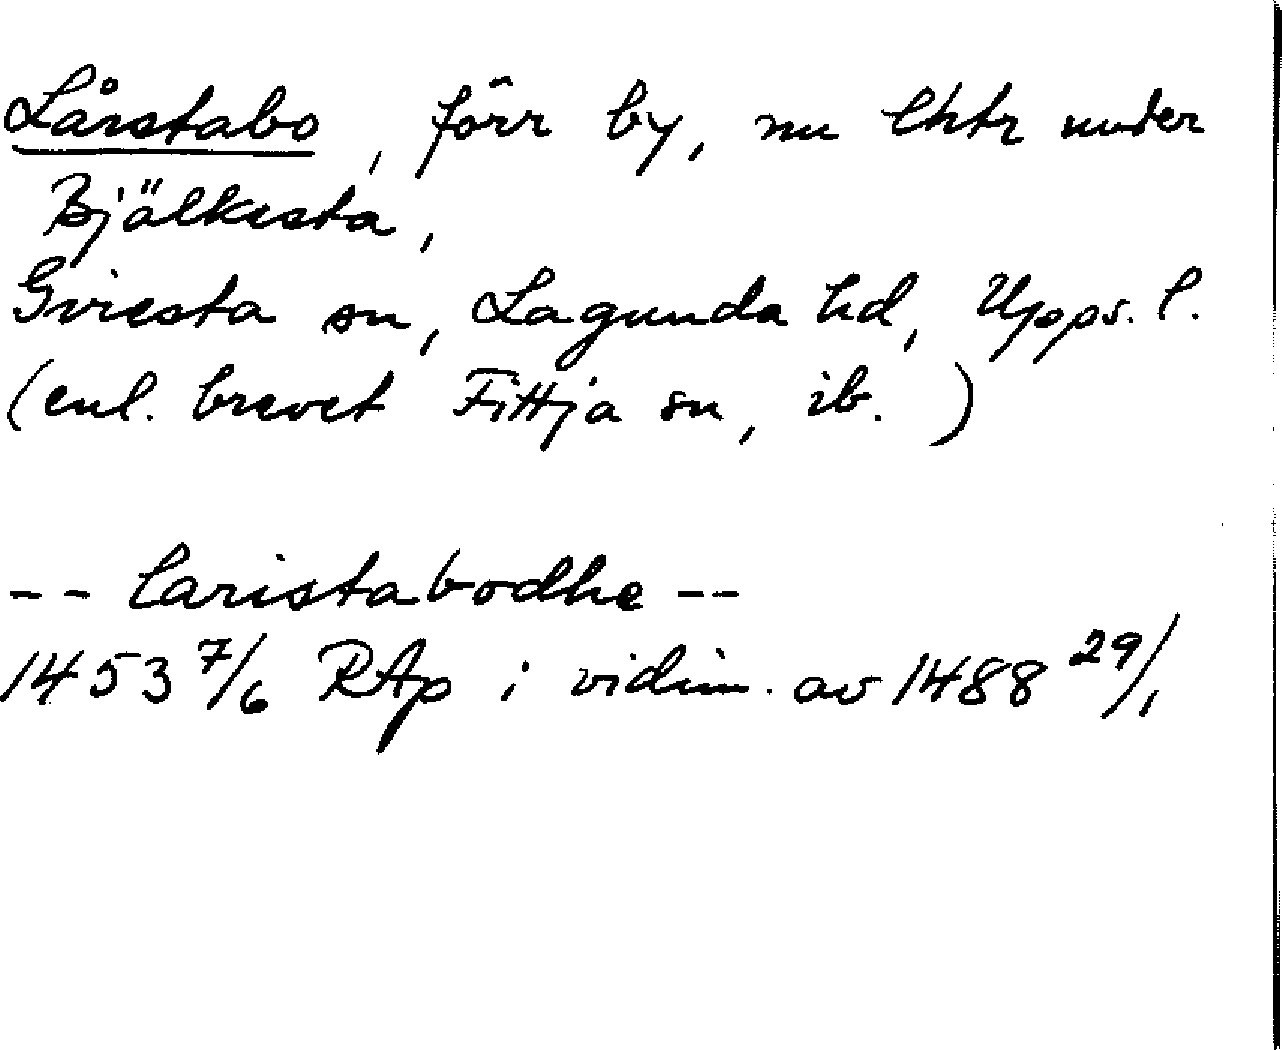 Lårstabo, förr by, nu lhtr under
Bjälkesta,
Gryesta sn, Lagunda hd, Upps. l.
(enl. brevet Fittja sn, ib.)
-- laristabodhe --
1453 7/6 RAp i vidim. av 1488 29/1